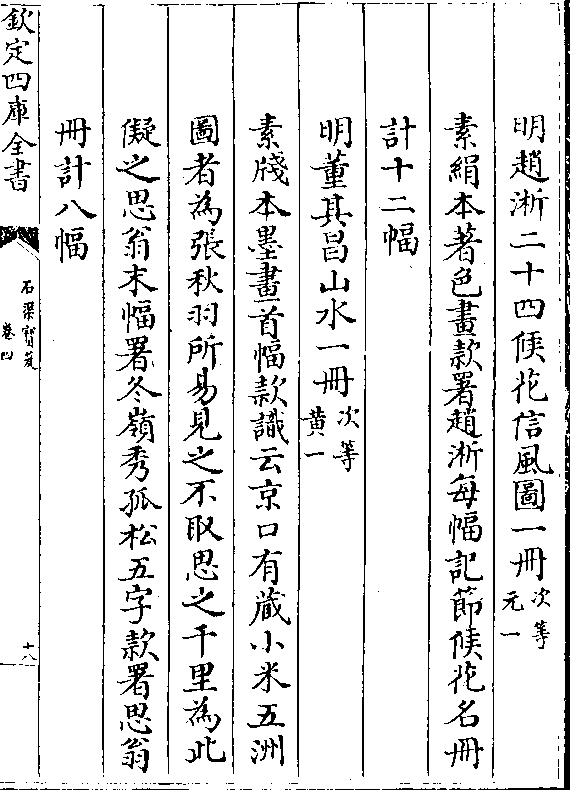 明趙淅二十四候花信風圖一冊次等元一
素絹本著色畫款署趙淅每幅記節候花名冊
計十二幅
明董其昌山水一冊次等黄一
素牋本墨畫首幅款識云京口有蔵小米五洲
圖者為張秋羽所易見之不取思之千里為此
儗之思翁末幅署冬嶺秀孤松五字款署思翁
冊計八幅
欽定四庫全書
石渠寶笈
卷四
十八